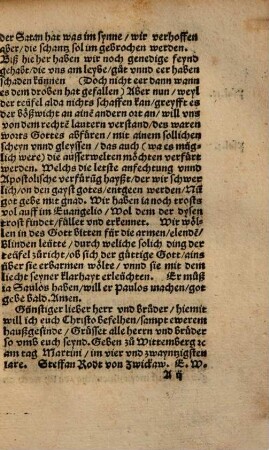 der Satan hat was im synne / wir verhoffen
aber / die schantz sol im gebrochen werden.
Biß hie her haben wir noch genedige feynd
gehabt / die vns am leybe / gůt vnnd eer haben
schaden künnen (Doch nicht eer dann wann
es dem droben hat gefallen) Aber nun / weyl
der teüfel alda nichts schaffen kan / greyfft es
der bößwicht an ainē andern ort an / will vns
von dem rechtē lautern verstand / des waren
worts Gottes abfüren / mit ainem sollichen
scheyn vnnd gleyssen / das auch (wa es müg/
lich were) die ausserwelten möchten verfürt
werden. Welchs die letste anfechtung vnnd
Apostolische verfürūg hayßt / der wir schwer
lich / on den gayst gotes / entgeen werden / Nū
got gebe mit gnad. Wir haben ia noch trosts
vol auff im Euangelio / Wol dem der dysen
trost findet / füller vnd erkennet. Wir wöl/
len in des Gott bitten für die armen / elende /
blinden leütte / durch weliche solich ding der
teüfel zůricht / ob sich der güttige Gott / ains
über sie erbarmen wölte / vnnd sie mit dem
liecht seyner klarhayt erleüchten. Er můß
ia Saulos haben / will er Paulos machen / got
gebe bald. Amen.
Günstiger lieber herr vnd brůder / hiemit
will ich euch Christo befelhen / sampt ewerem
haußgesinde / Grüsset alle herrn vnd brůder
so vmb euch seynd. Geben zů Wittemberg ꝛc
am tag Martini / im vier vnd zwayntzigsten
iare. Steffan Rodt von Zwickaw. E. W.
A ij